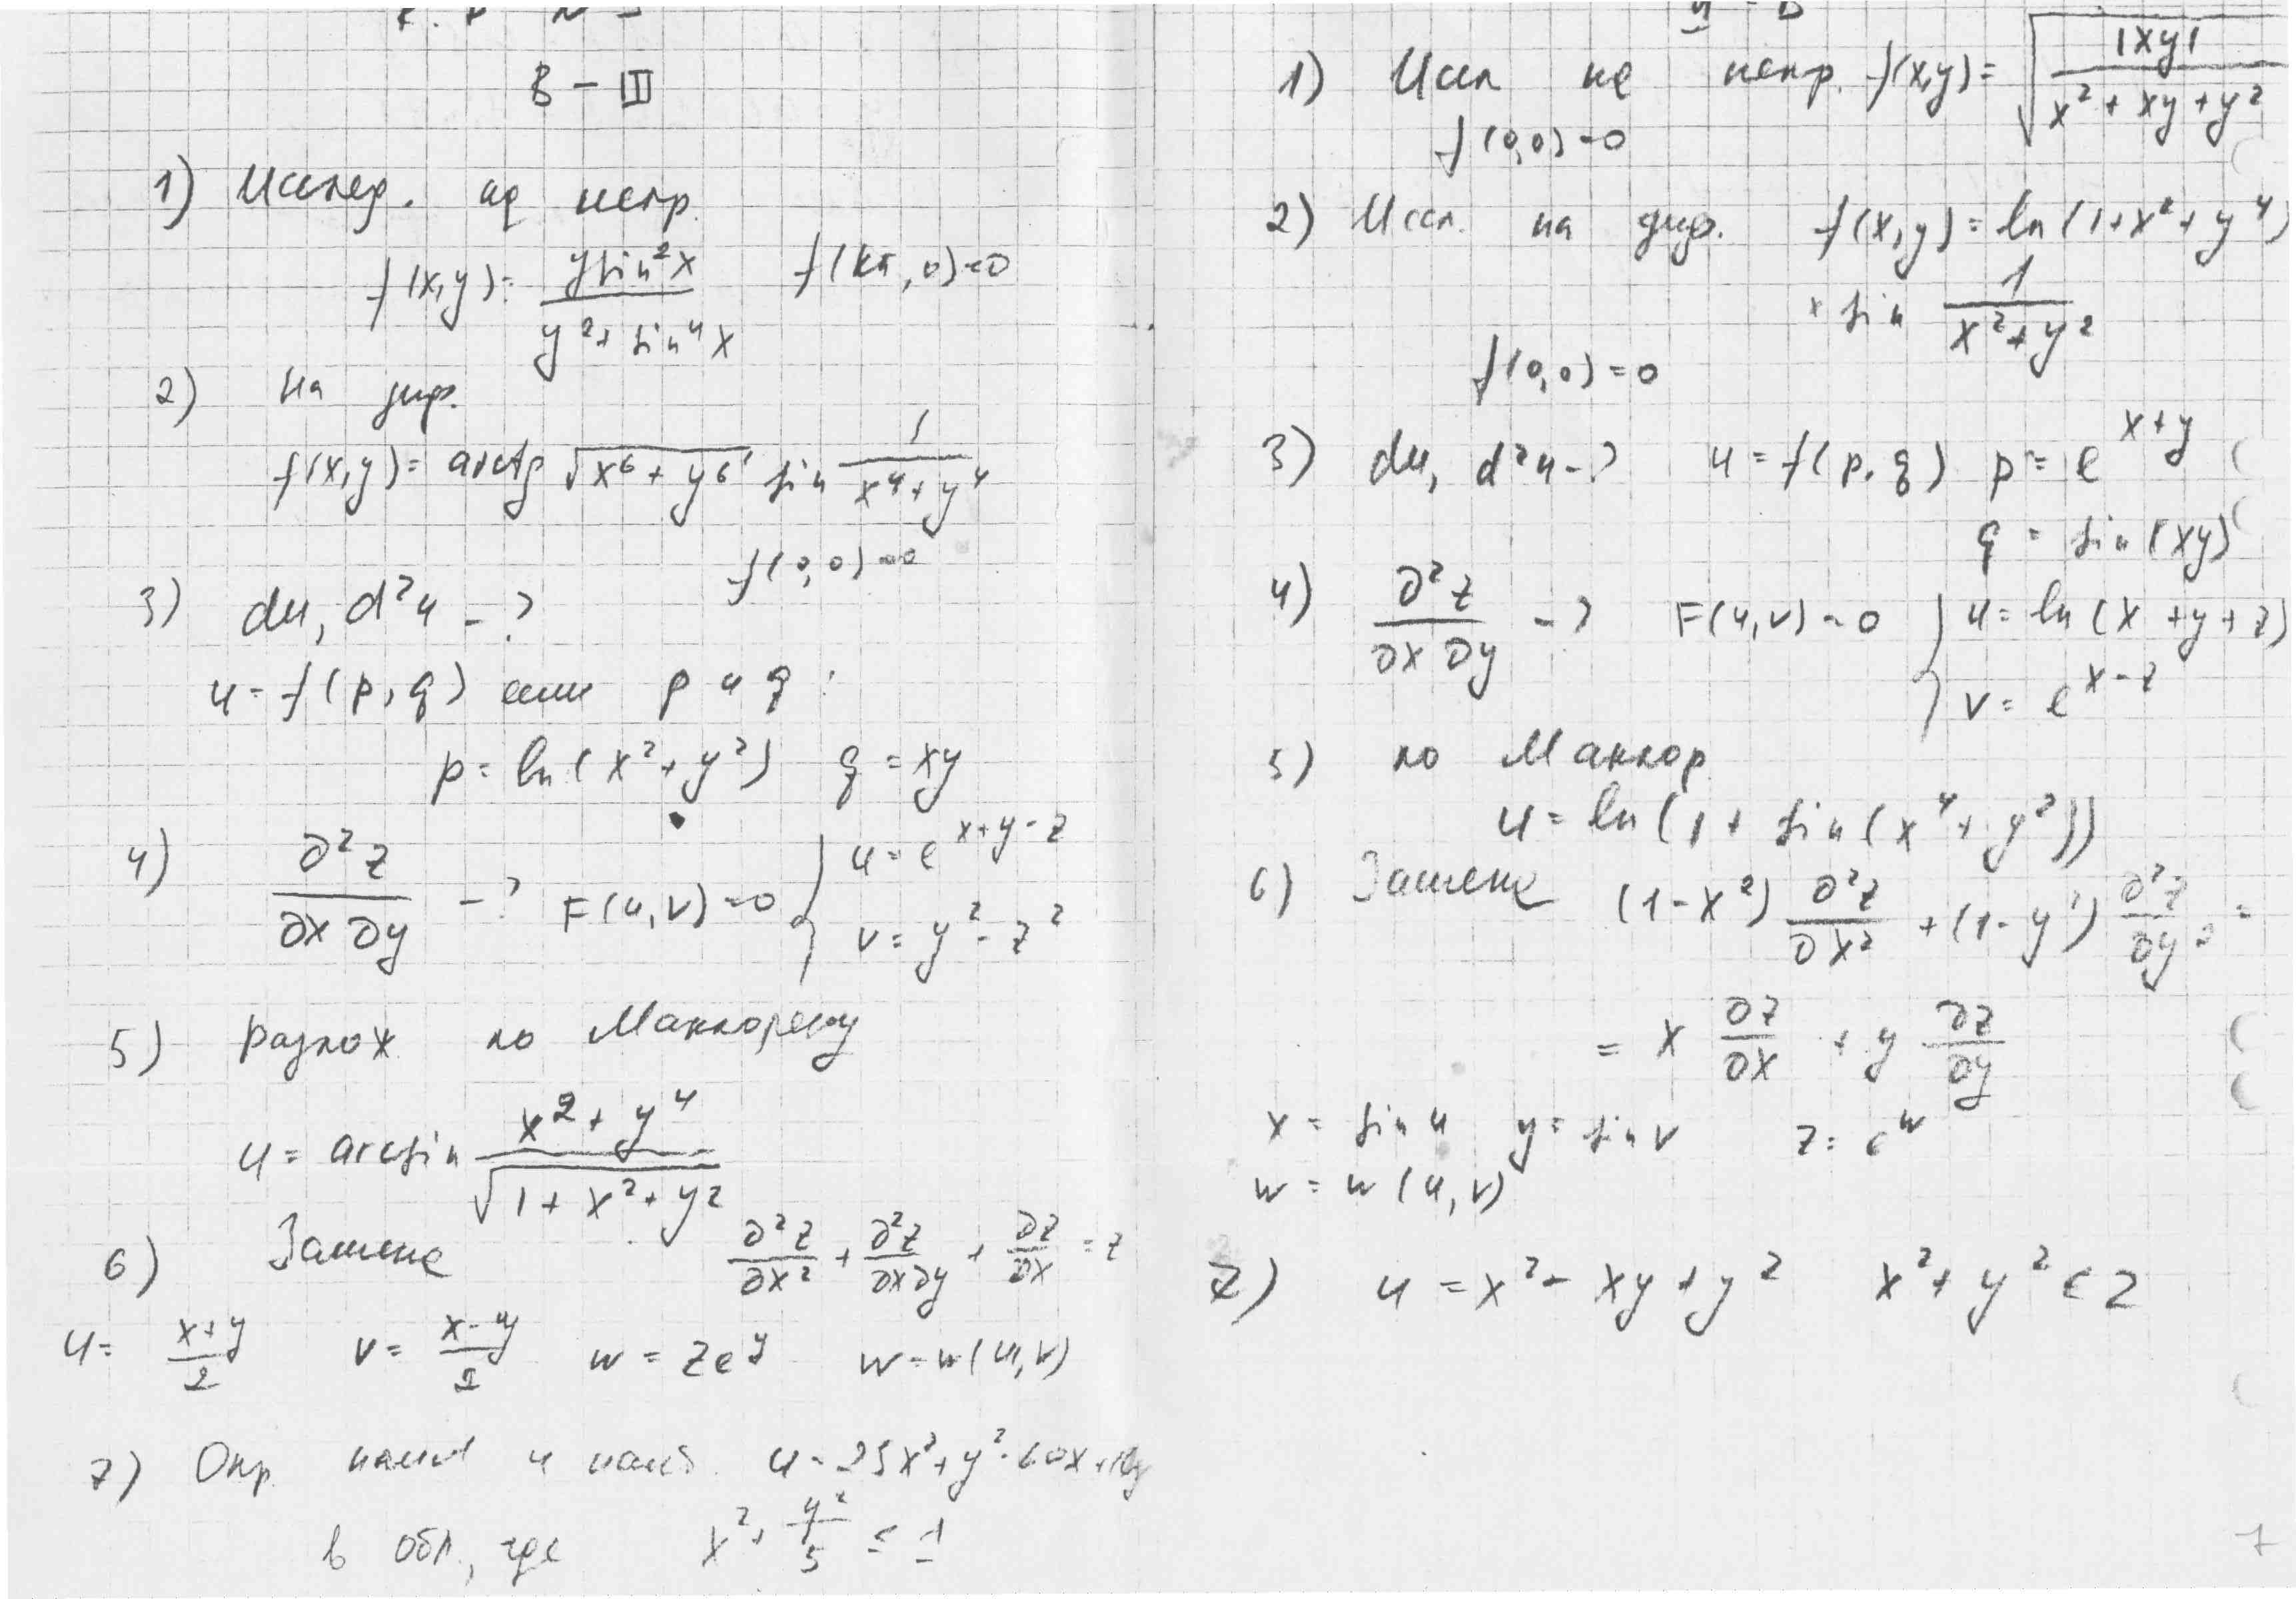 В – III
1) Исслед. на непр.
f(x,y) = y sin²x / (y² + sin⁴x)   f(kπ, 0) = 0
2) на диф.
f(x,y) = arctg √(x⁶ + y⁶) sin 1/(x⁴ + y⁴)
f(0,0) = 0
3) du, d²u - ?
u = f(p, q) если p и q :
p = ln(x² + y²)   q = xy
4) ∂²z/∂x∂y - ?   F(u,v) = 0   { u = e^(x+y-z)
v = y² - z²
5) Разлож по Маклорену
u = arcsin (x² + y⁴)/√(1 + x² + y²)
6) Замена   ∂²z/∂x² + ∂²z/∂x∂y + ∂z/∂x = z
u = (x+y)/2   v = (x-y)/2   w = ze^y   w = w(u,v)
7) Опр. наим и наиб. u = 25x² + y² - 60x + 10y
в обл., где   x² + y²/5 ≤ 1
1) Иссл на непр. f(x,y) = √(|xy|/(x² + xy + y²))
f(0,0) = 0
2) Иссл. на диф.   f(x,y) = ln(1 + x² + y⁴)
× sin 1/(x² + y²)
f(0,0) = 0
3) du, d²u - ?   u = f(p, q)   p = e^(x+y)
q = sin(xy)
4) ∂²z/∂x∂y - ?   F(u,v) = 0   { u = ln(x + y + z)
v = e^(x-z)
5) по Маклор
u = ln(1 + sin(x⁴ + y²))
6) Замена   (1-x²) ∂²z/∂x² + (1-y²) ∂²z/∂y² =
= x ∂z/∂x + y ∂z/∂y
x = sin u   y = sin v   z = e^w
w = w(u,v)
7)   u = x² - xy + y²   x² + y² ≤ 2
7